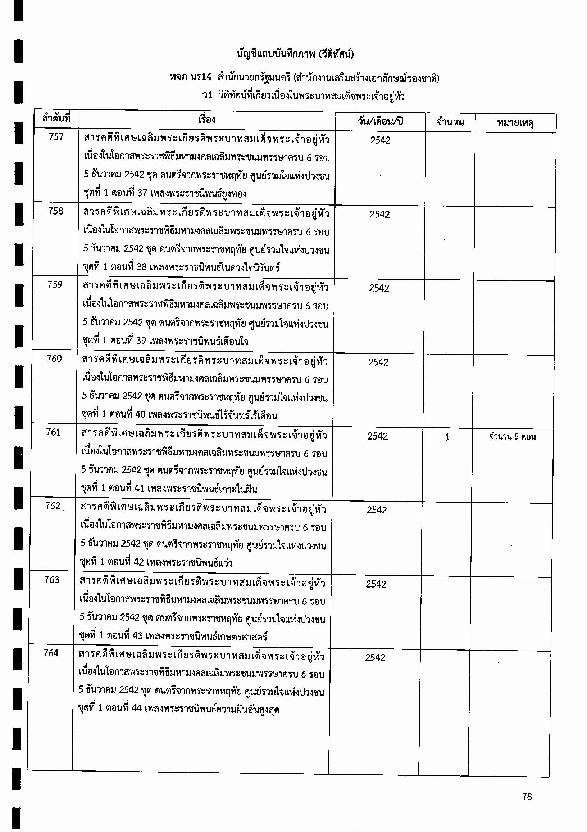 บัญชีแถบบันทึกภาพ (วีดิทัศน์)
หจภ นร14 สำนักนายกรัฐมนตรี (สำนักงานเสริมสร้างเอกลักษณ์ของชาติ)
ว1 วีดิทัศน์ที่เกี่ยวเนื่องในพระบาทสมเด็จพระเจ้าอยู่หัว
ลำดับที่ เรื่อง วัน/เดือน/ปี จำนวน หมายเหตุ
757 สารคดีพิเศษเฉลิมพระเกียรติพระบาทสมเด็จพระเจ้าอยู่หัว 2542
เนื่องในโอกาสพระราชพิธีมหามงคลเฉลิมพระชนมพรรษาครบ 6 รอบ
5 ธันวาคม 2542 ชุด ดนตรีจากพระราชหฤทัย ศูนย์รวมใจแห่งปวงชน
ชุดที่ 1 ตอนที่ 37 เพลงพระราชนิพนธ์ยูงทอง
758 สารคดีพิเศษเฉลิมพระเกียรติพระบาทสมเด็จพระเจ้าอยู่หัว 2542
เนื่องในโอกาสพระราชพิธีมหามงคลเฉลิมพระชนมพรรษาครบ 6 รอบ
5 ธันวาคม 2542 ชุด ดนตรีจากพระราชหฤทัย ศูนย์รวมใจแห่งปวงชน
ชุดที่ 1 ตอนที่ 38 เพลงพระราชนิพนธ์ในดวงใจนิรันดร์
759 สารคดีพิเศษเฉลิมพระเกียรติพระบาทสมเด็จพระเจ้าอยู่หัว 2542
เนื่องในโอกาสพระราชพิธีมหามงคลเฉลิมพระชนมพรรษาครบ 6 รอบ
5 ธันวาคม 2542 ชุด ดนตรีจากพระราชหฤทัย ศูนย์รวมใจแห่งปวงชน
ชุดที่ 1 ตอนที่ 39 เพลงพระราชนิพนธ์เตือนใจ
760 สารคดีพิเศษเฉลิมพระเกียรติพระบาทสมเด็จพระเจ้าอยู่หัว 2542
เนื่องในโอกาสพระราชพิธีมหามงคลเฉลิมพระชนมพรรษาครบ 6 รอบ
5 ธันวาคม 2542 ชุด ดนตรีจากพระราชหฤทัย ศูนย์รวมใจแห่งปวงชน
ชุดที่ 1 ตอนที่ 40 เพลงพระราชนิพนธ์ไร้จันทร์ไร้เดือน
761 สารคดีพิเศษเฉลิมพระเกียรติพระบาทสมเด็จพระเจ้าอยู่หัว 2542 1 จำนวน 5 ตอน
เนื่องในโอกาสพระราชพิธีมหามงคลเฉลิมพระชนมพรรษาครบ 6 รอบ
5 ธันวาคม 2542 ชุด ดนตรีจากพระราชหฤทัย ศูนย์รวมใจแห่งปวงชน
ชุดที่ 1 ตอนที่ 41 เพลงพระราชนิพนธ์เกาะในฝัน
762 สารคดีพิเศษเฉลิมพระเกียรติพระบาทสมเด็จพระเจ้าอยู่หัว 2542
เนื่องในโอกาสพระราชพิธีมหามงคลเฉลิมพระชนมพรรษาครบ 6 รอบ
5 ธันวาคม 2542 ชุด ดนตรีจากพระราชหฤทัย ศูนย์รวมใจแห่งปวงชน
ชุดที่ 1 ตอนที่ 42 เพลงพระราชนิพนธ์แว่ว
763 สารคดีพิเศษเฉลิมพระเกียรติพระบาทสมเด็จพระเจ้าอยู่หัว 2542
เนื่องในโอกาสพระราชพิธีมหามงคลเฉลิมพระชนมพรรษาครบ 6 รอบ
5 ธันวาคม 2542 ชุด ดนตรีจากพระราชหฤทัย ศูนย์รวมใจแห่งปวงชน
ชุดที่ 1 ตอนที่ 43 เพลงพระราชนิพนธ์เกษตรศาสตร์
764 สารคดีพิเศษเฉลิมพระเกียรติพระบาทสมเด็จพระเจ้าอยู่หัว 2542
เนื่องในโอกาสพระราชพิธีมหามงคลเฉลิมพระชนมพรรษาครบ 6 รอบ
5 ธันวาคม 2542 ชุด ดนตรีจากพระราชหฤทัย ศูนย์รวมใจแห่งปวงชน
ชุดที่ 1 ตอนที่ 44 เพลงพระราชนิพนธ์ความฝันอันสูงสุด
78